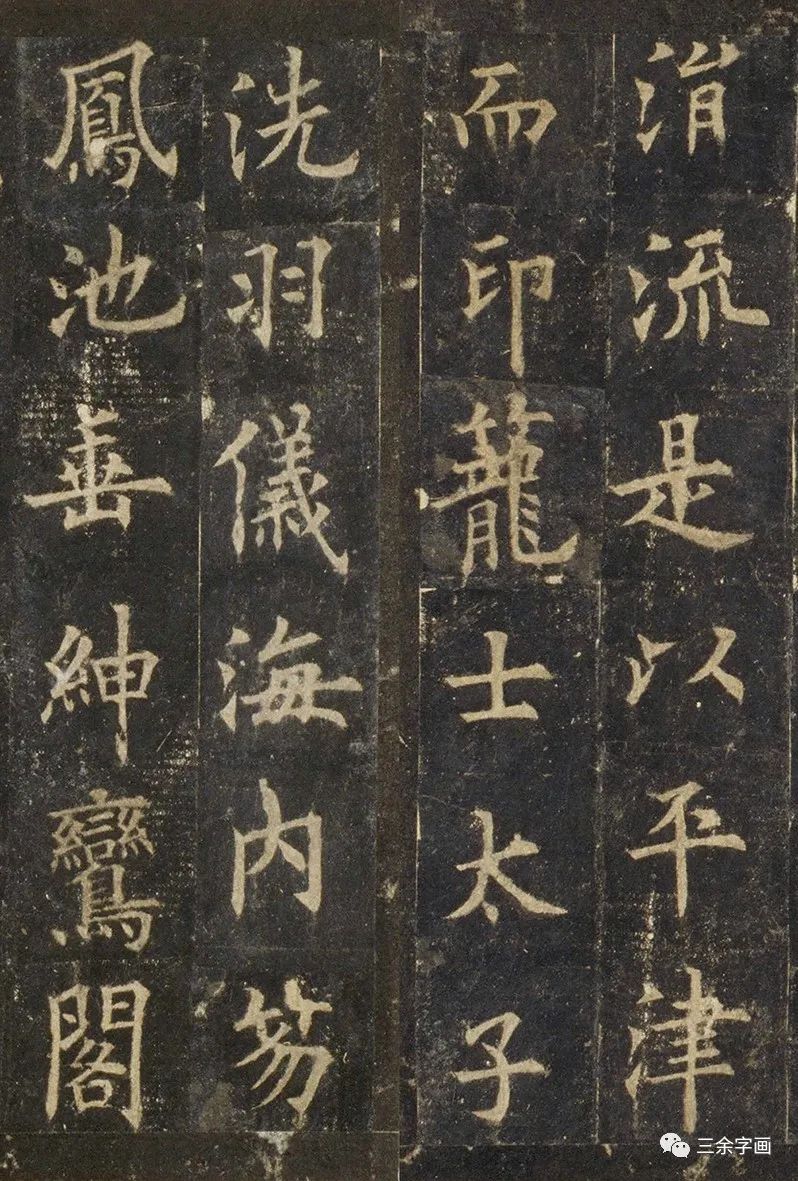 涓流是以平津
而印籠士太子
洗羽儀海内笏
鳳池垂紳鸞閣
三余字画